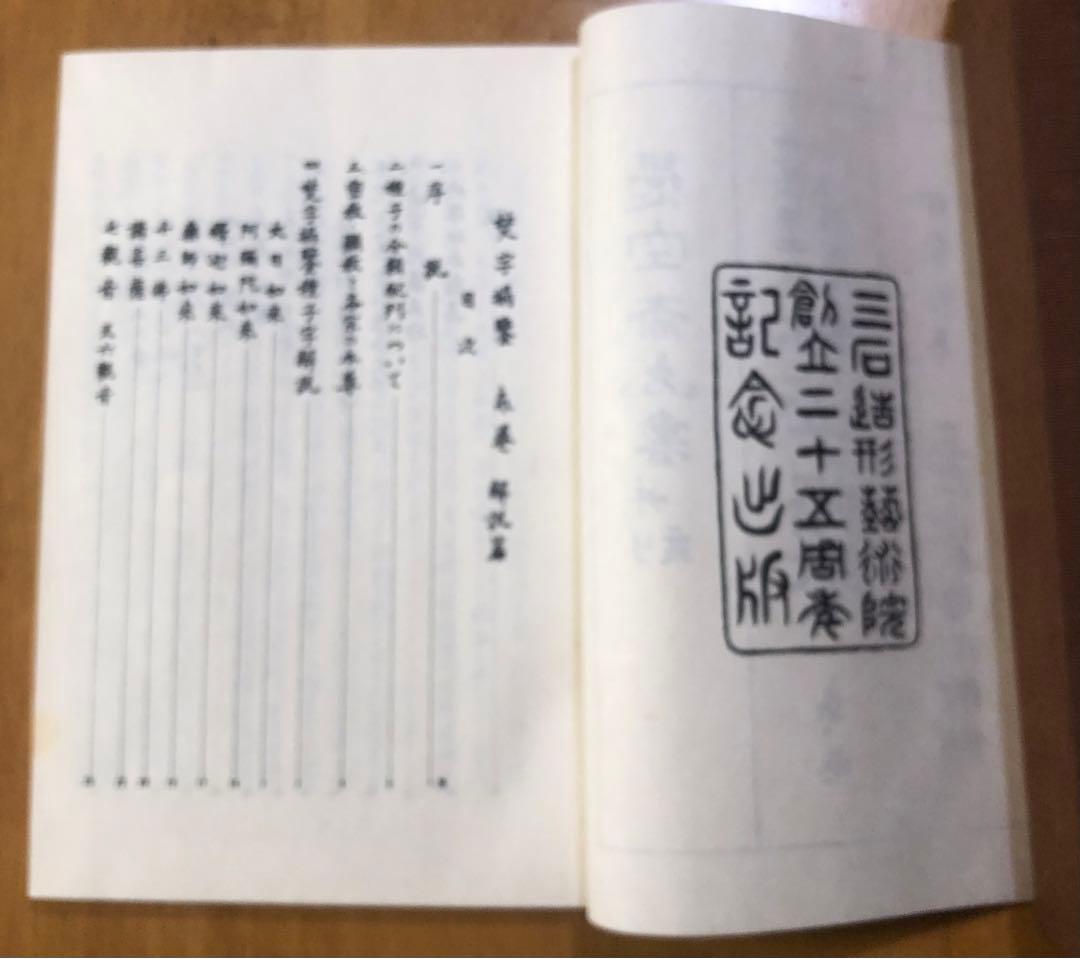 三石造形藝術院
創立二十五周年
記念出版
梵字編鑒 末巻 解説篇
目次
一 序 説
二 種子の分類配列について
三 密教・顕教と各宗の本尊
四 梵字編鑒種子字解説
大日如来
阿彌陀如来
釋迦如来
藥師如来
十三佛
諸菩薩
七觀音 又六觀音